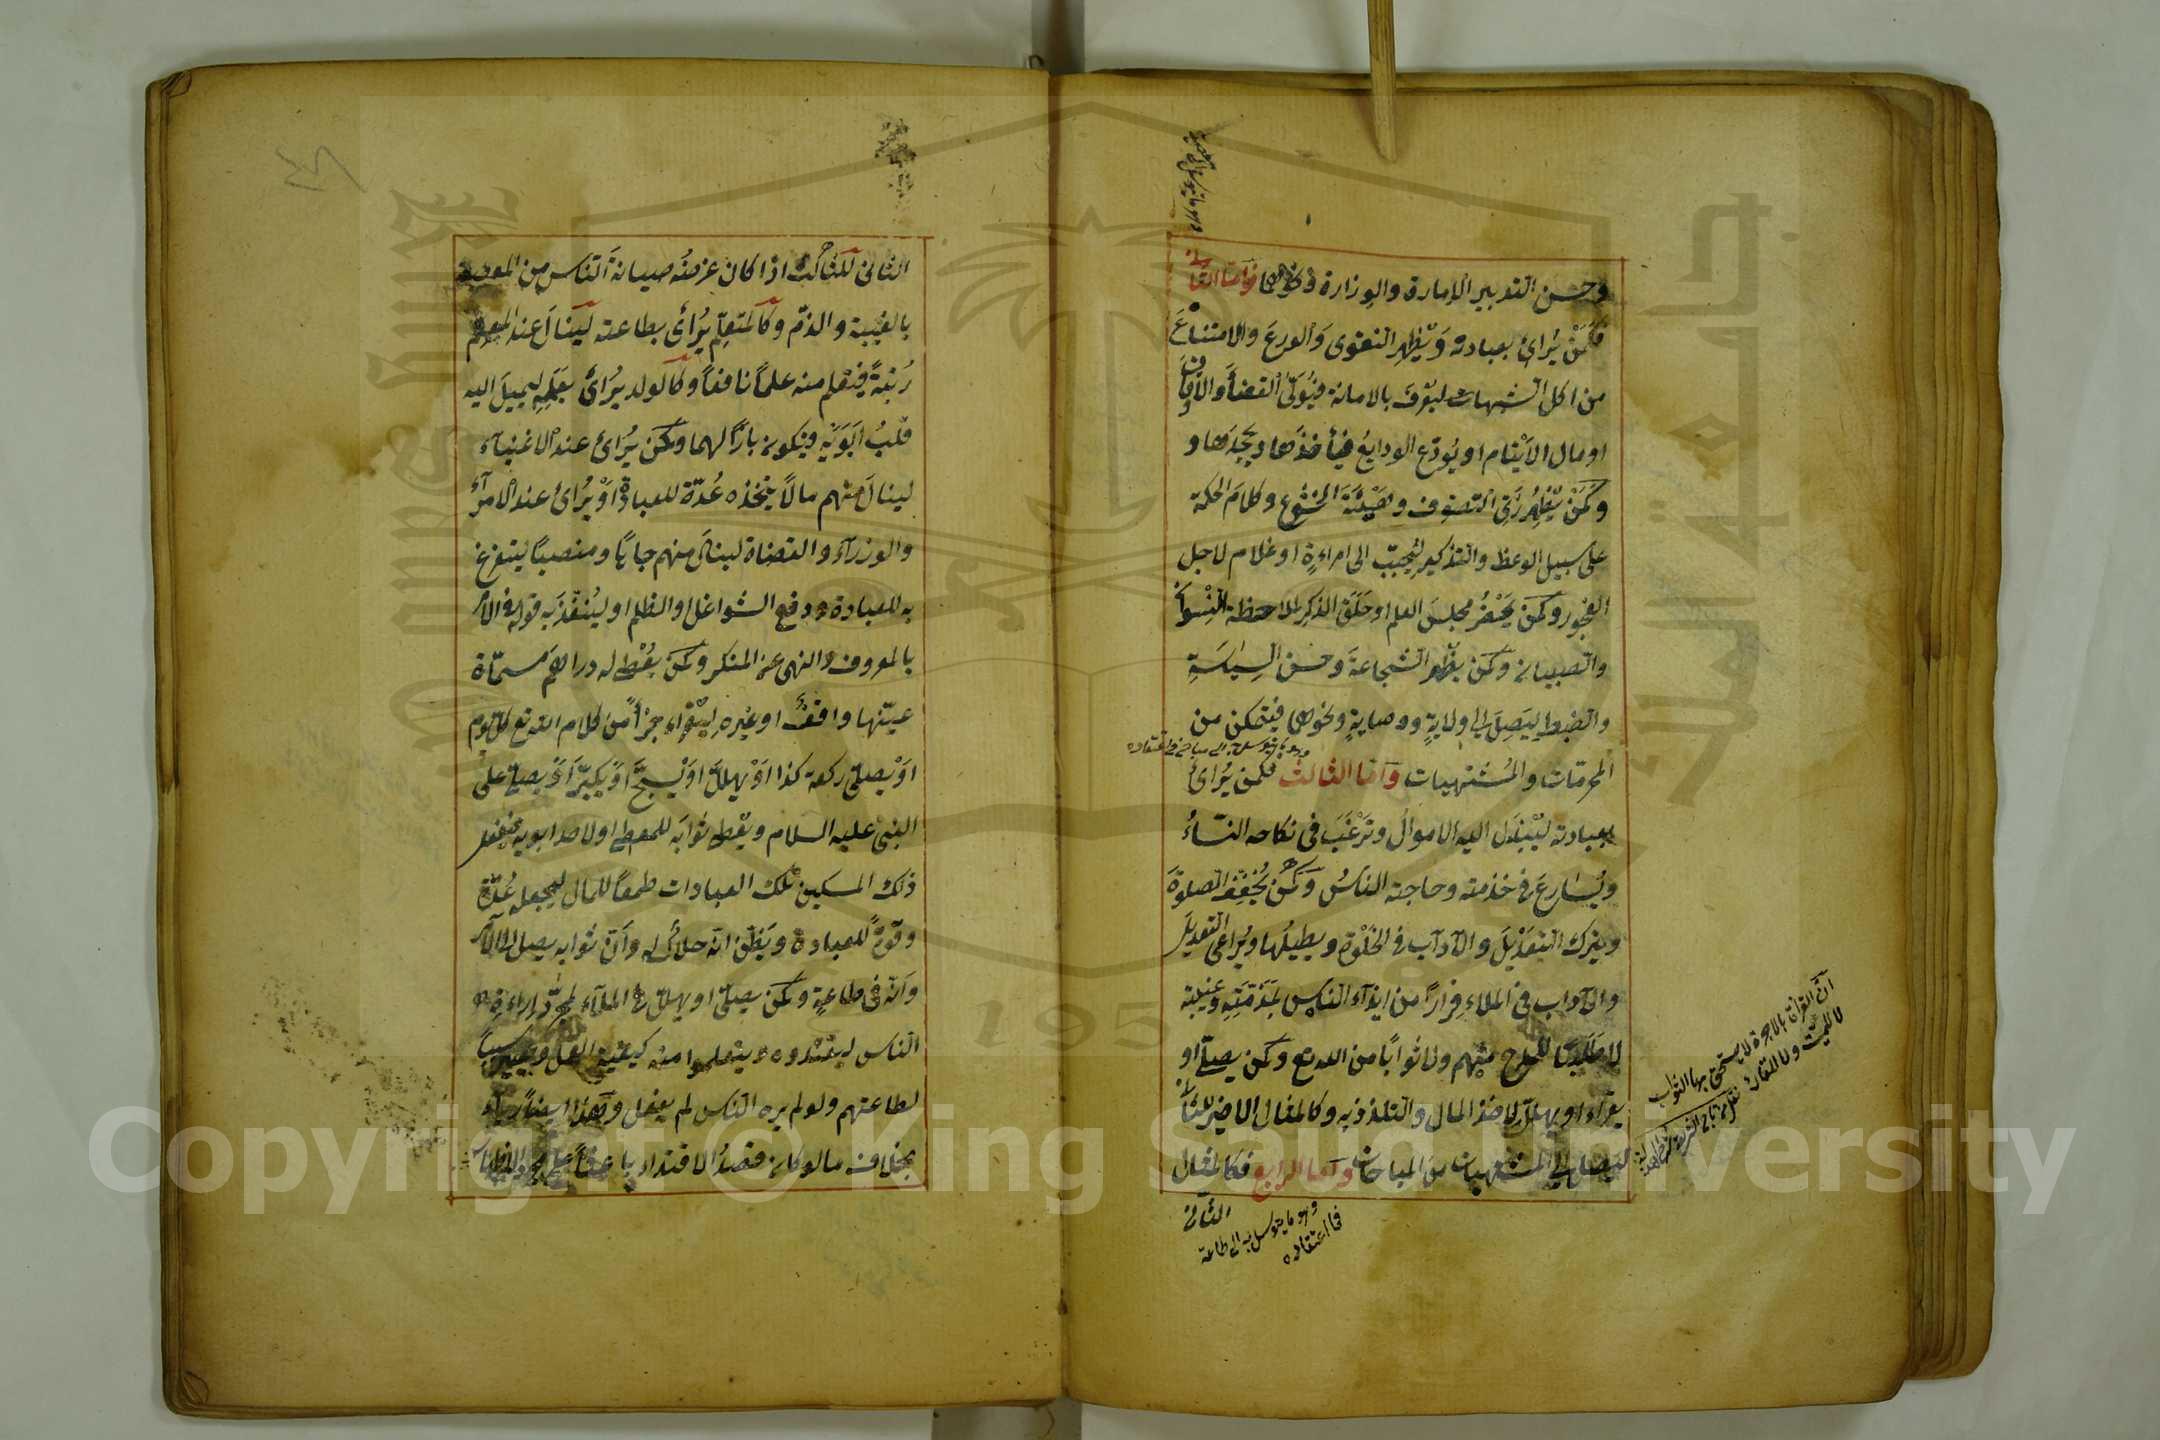 وهو ما يتوسل به الى معصية
وحسن التدبير للامارة والوزارة ونحوها واما الثانى
فكمن يُرائ بعبادته ويُظهر التقوى والورع والامتناع
من اكل الشبهات ليُعرف بالامانة فيُولّى القضاء والاوقاف
او مال الايتام او يُودَع الودايع فيأخذها ويجحدها و
وكمن يُظهر زىّ التصوف وهيئة الخشوع وكلام الحكمة
على سبيل الوعظ والتذكير ليتحبّب الى امراءةٍ او غلام لاجل
الفجور وكمن يحضر مجلس العلم او حلق الذكر لملاحظة النسوان
والصبيان وكمن يظهر الشجاعة وحسن السياسة
والضبط ليصل الى ولايةٍ ووصايةٍ ونحوها فيتمكن من
وهو ما يتوسل به الى مباح فى اعتقاده
المحرمات والمشتهيات واما الثالث فكمن يُرائ
بعبادته ليُبذل اليه الاموال وترغب فى نكاحه النساءُ
ويُسارع فى خدمته وحاجته الناسُ وكمن يُخفّف الصلوة
ويترك التعديل والآداب فى الخلوة ويطيلها ويُراعى التعديل
والآداب فى الملاء فراراً من ايذاء الناس بمذمّته وغيبته
لا طلبًا للمدح منهم ولا ثوابًا من الله تع وكمن يصلّى او
يقرأ او يهلّل لاخذ المال والتلذذ به وكالمثال الاخير للثانى
ليصل الى المشتهيات من المباحات واما الرابع فكالمثال
الثانى
وهو ما يتوسل به الى طاعة
فى اعتقاده
ان القرآن بالاجرة لا يستحق بها الثواب
لا للميت ولا للقارئ
الثانى للثالث اذا كان غرضه صيانة الناس من المعصية
بالغيبة والذمّ وكالمتعلّم يُرائ بطاعته لينال عند المعلم
رُتبةً فيتعلم منه علماً نافعاً وكالولد يُرائ بعلمه ليميل اليه
قلبُ ابويه فيكون بارًّا لهما وكمن يُرائ عند الاغنياء
لينال منهم مالاً يتخذه عُدّة للعبادة او يُرائ عند الامراء
والوزراء والقضاة لينال منهم جاهًا ومنصبًا ليتفرغ
به للعبادة ودفع الشواغل او الظلم او ليُنفّذ به قوله فى الامر
بالمعروف والنهى عن المنكر وكمن يُعطى له دراهم مسمّاة
عيّنها واقف او غيره ليقراء جزأً من كلام الله تع كل يوم
او يصلى ركعة كذا او يهلل او يسبح او يكبر او يصلى على
النبى عليه السلام ويعطى ثوابه للمعطى او لاحد ابويه فيفعل
ذلك المسكين تلك العبادات طمعاً للمال ليجعله عُدّة
وقوةً للعبادة ويظنّ انه حلال له وان ثوابه يصل الى الآمر
وانه فى طاعةٍ وكمن يصلى او يهلل فى الملاء لمجرد اراءة
الناس ليقتدوه ويتعلموا منه كيفية العمل ويصير سبباً
لطاعتهم ولو لم يره الناس لم يفعل وهذا ايضاً رياء
بخلاف ما لو كان قصدُ الاقتداء باعثاً على مجرد الاظهار
Copyright © King Saud University
King Saud University
1957